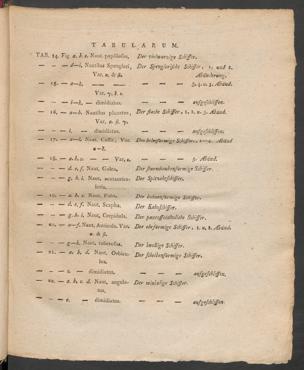 TABULARUM.
TAB. 14. Fig. a. b. c. Naut. papillosus, Der vielwarzige Schiffer.
— — — d—i. Nautilus Spengleri, Der Spenglerische Schiffer, 1. und 2.
Var. α. & β. Abänderung.
— 15. — a—h. — — — 3. 4. u. 5. Abänd.
Var. γ. δ. ε.
— — — i—k. — dimidiatus. — — — aufgeschliffen.
— 16. — a—h. Nautilus placenta, Der flache Schiffer, 1. 2. u. 3. Abänd.
Var. α. β. γ.
— — — i. — dimidiatus. — — — aufgeschliffen.
— 17. — a—l. Naut. Cassis, Var. Der helmförmige Schiffer,
— 18. — a. b. c. — — Var. — 5. Abänd.
— — — d. e. f. Naut. Galea, Der sturmhaubenförmige Schiffer.
— — — g. h. i. Naut. acutauricularia, Der Spitzohrschiffer.
— 19. — a. b. c. Naut. Faba, Der bohnenförmige Schiffer.
— — — d. e. f. Naut. Scapha, Der Kahnschiffer.
— — — g. h. i. Naut. Crepidula, Der pantoffelähnliche Schiffer.
— 20. — a—f. Naut. Auricula, Var. Der ohrförmige Schiffer, 1. u. 2. Abänd.
α. & β.
— — — g—k. Naut. tuberosus, Der knollige Schiffer.
— 21. — a. b. c. d. Naut. Orbiculus, Der scheibenförmige Schiffer.
— — — e. — dimidiatus. — — — aufgeschliffen.
— 22. — a. b. c. d. Naut. angulatus, Der winklige Schiffer.
— — — e. — dimidiatus. — — — aufgeschliffen.